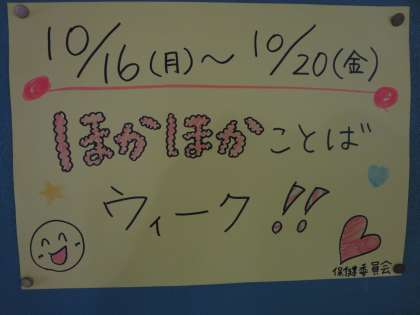 10/16(月)～10/20(金)
ぽかぽかことば
ウィーク!!
保健委員会